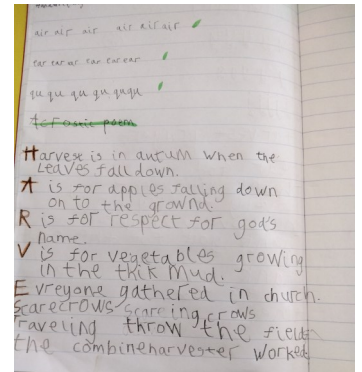 air air air air air air
ear ear ear ear ear ear
qu qu qu qu ququ
Acrostic poem
Harvest is in autum when the
Leaves fall down.
A is for apples falling down
on to the grownd.
R is for respect for god's
name.
V is for vegetables growing
in the thik mud.
Evreyone gathered in church.
Scarecrows scareing crows
Traveling throw the fields
the combineharvester worked